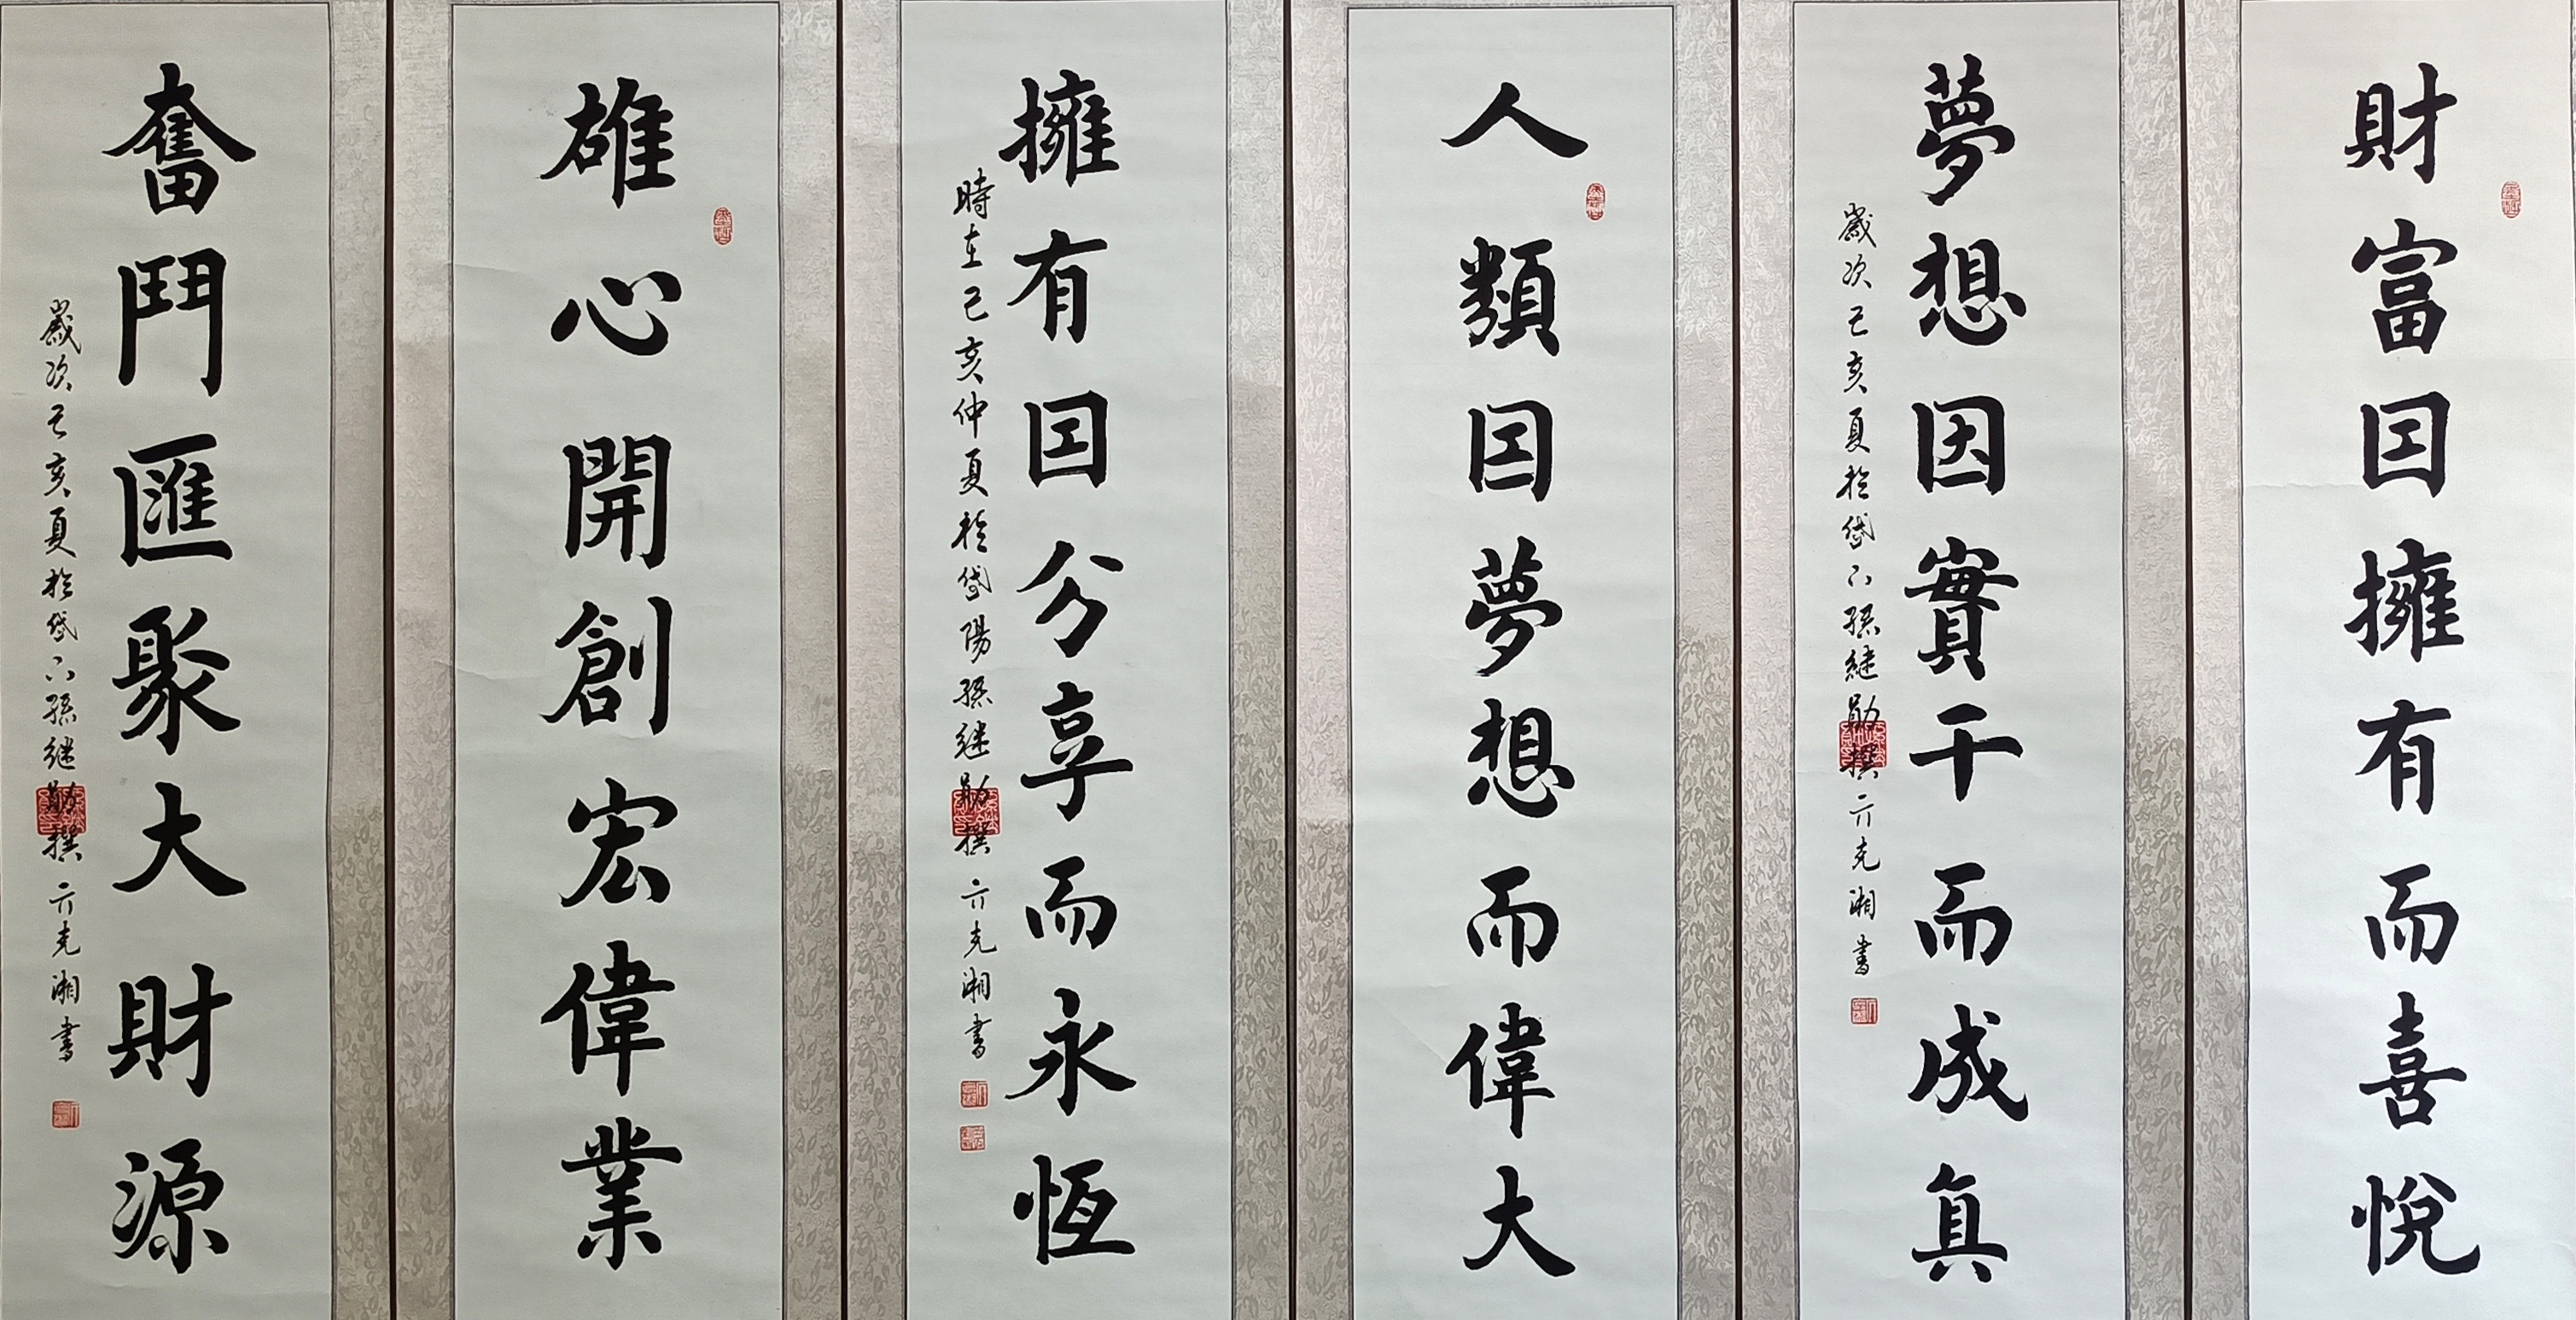 財富因擁有而喜悅
夢想因實干而成真
歲次己亥夏於岱下孫继勛撰 亓克湘書
人類因夢想而偉大
擁有因分享而永恆
時在己亥仲夏於岱陽孫继勛撰 亓克湘書
雄心開創宏偉業
奮鬥匯聚大財源
歲次己亥夏於岱下孫继勛撰 亓克湘書